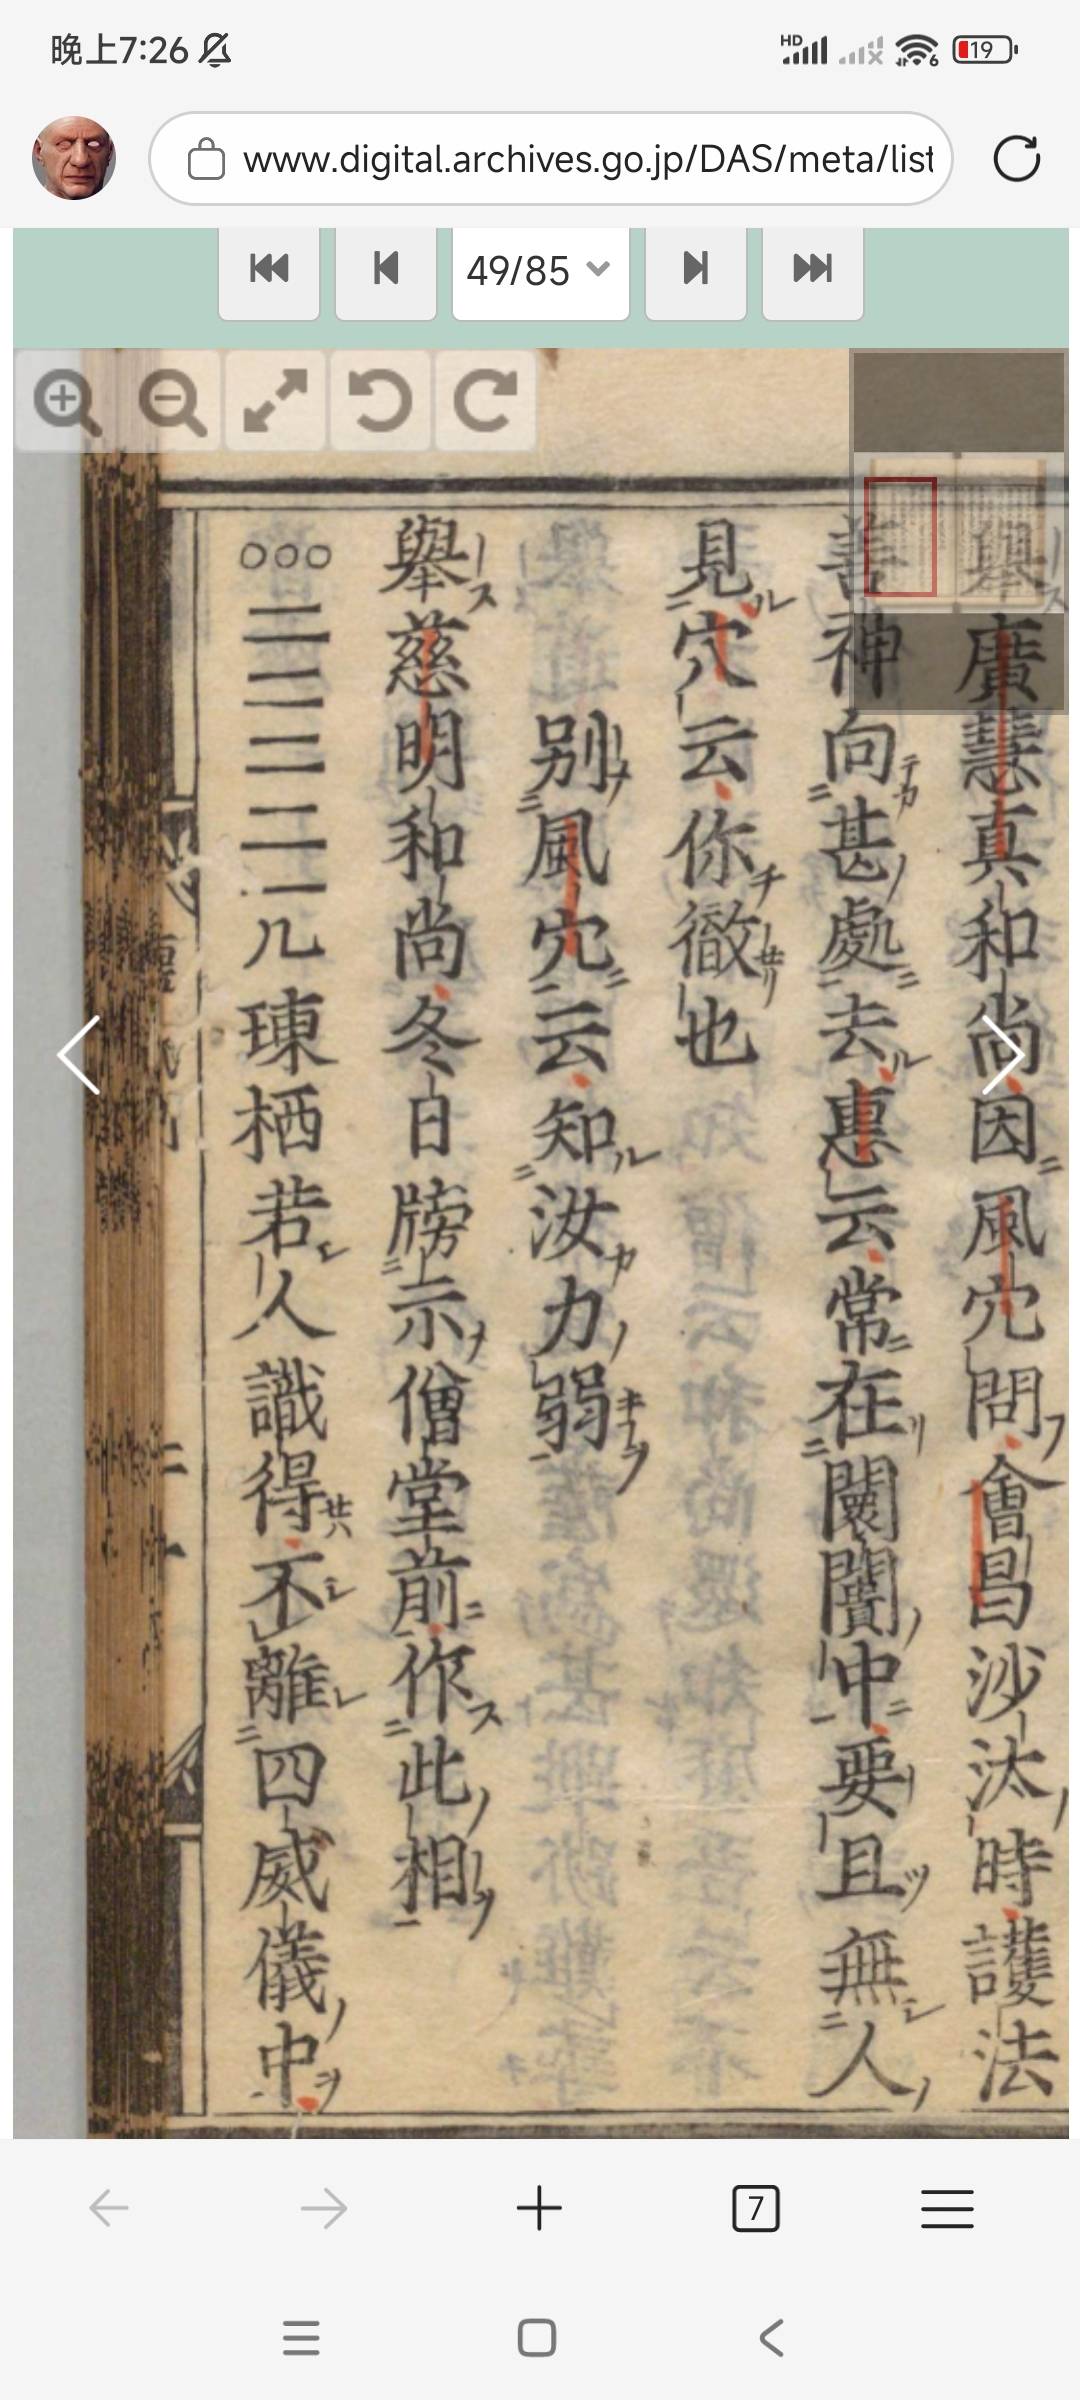 晚上7:26
HD
6
19
www.digital.archives.go.jp/DAS/meta/list
49/85
舉廣慧真和尚因風穴問會昌沙汰時護法
善神向甚處去惠云常在闤闠中要且無人
見穴云你徹也
別風穴云知汝力弱
舉慈明和尚冬日牓示僧堂前作此相
○○○二二三二一几㻋栖若人識得不離四威儀中
7